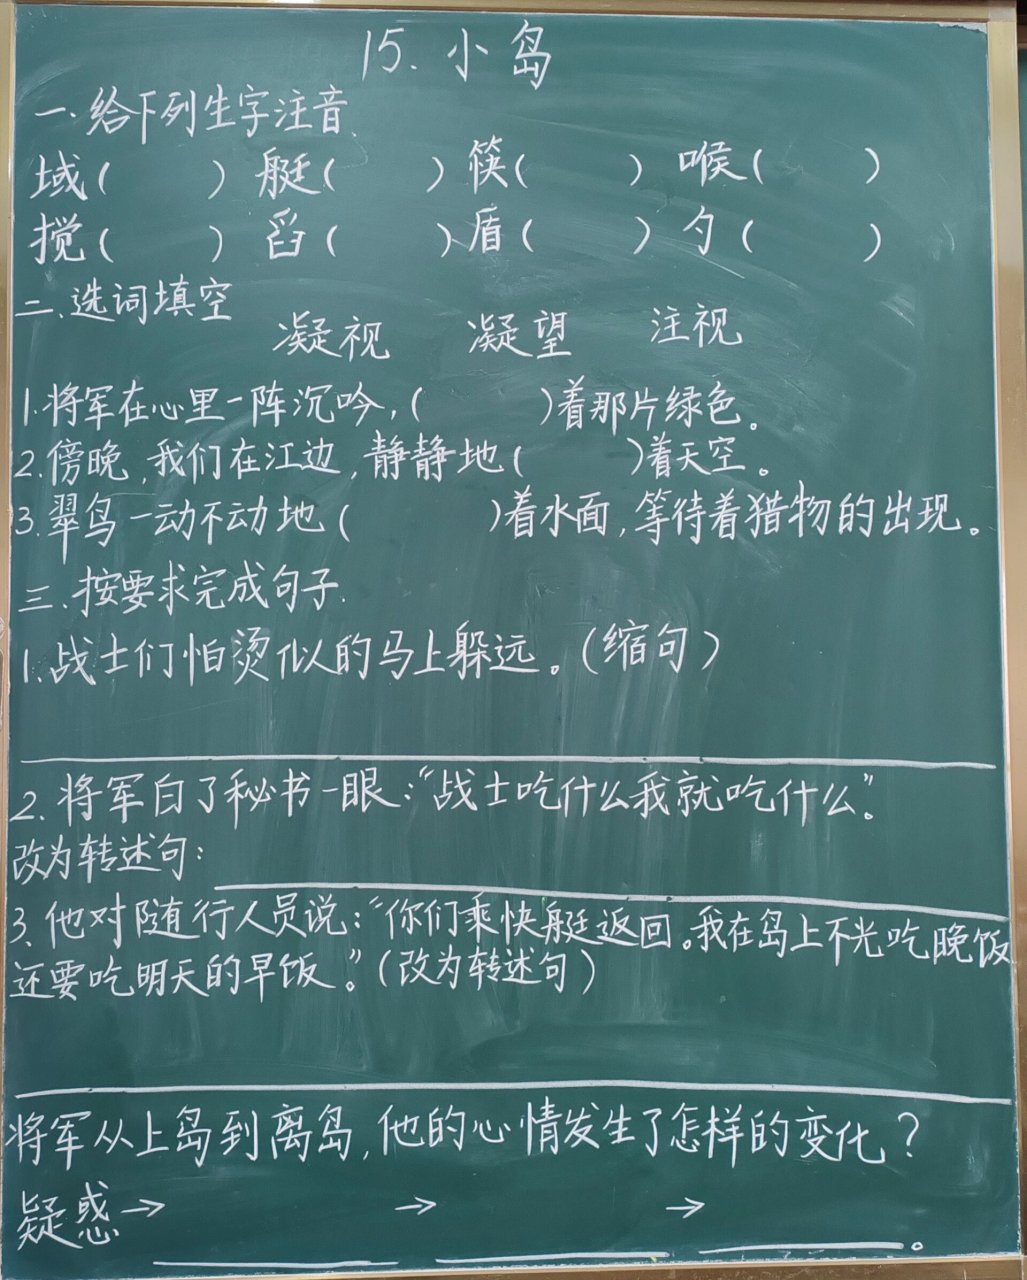 15. 小岛
一.给下列生字注音.
域(　　) 艇(　　) 筷(　　) 喉(　　)
搅(　　) 舀(　　) 盾(　　) 勺(　　)
二.选词填空
凝视　凝望　注视
1.将军在心里一阵沉吟,(　　)着那片绿色。
2.傍晚,我们在江边,静静地(　　)着天空。
3.翠鸟一动不动地(　　)着水面,等待着猎物的出现。
三.按要求完成句子.
1.战士们怕烫似的马上躲远。(缩句)
2.将军白了秘书一眼:“战士吃什么我就吃什么”。
改为转述句:
3.他对随行人员说:“你们乘快艇返回。我在岛上不光吃晚饭
还要吃明天的早饭。”(改为转述句)
将军从上岛到离岛,他的心情发生了怎样的变化?
疑惑→　　→　　→　　。